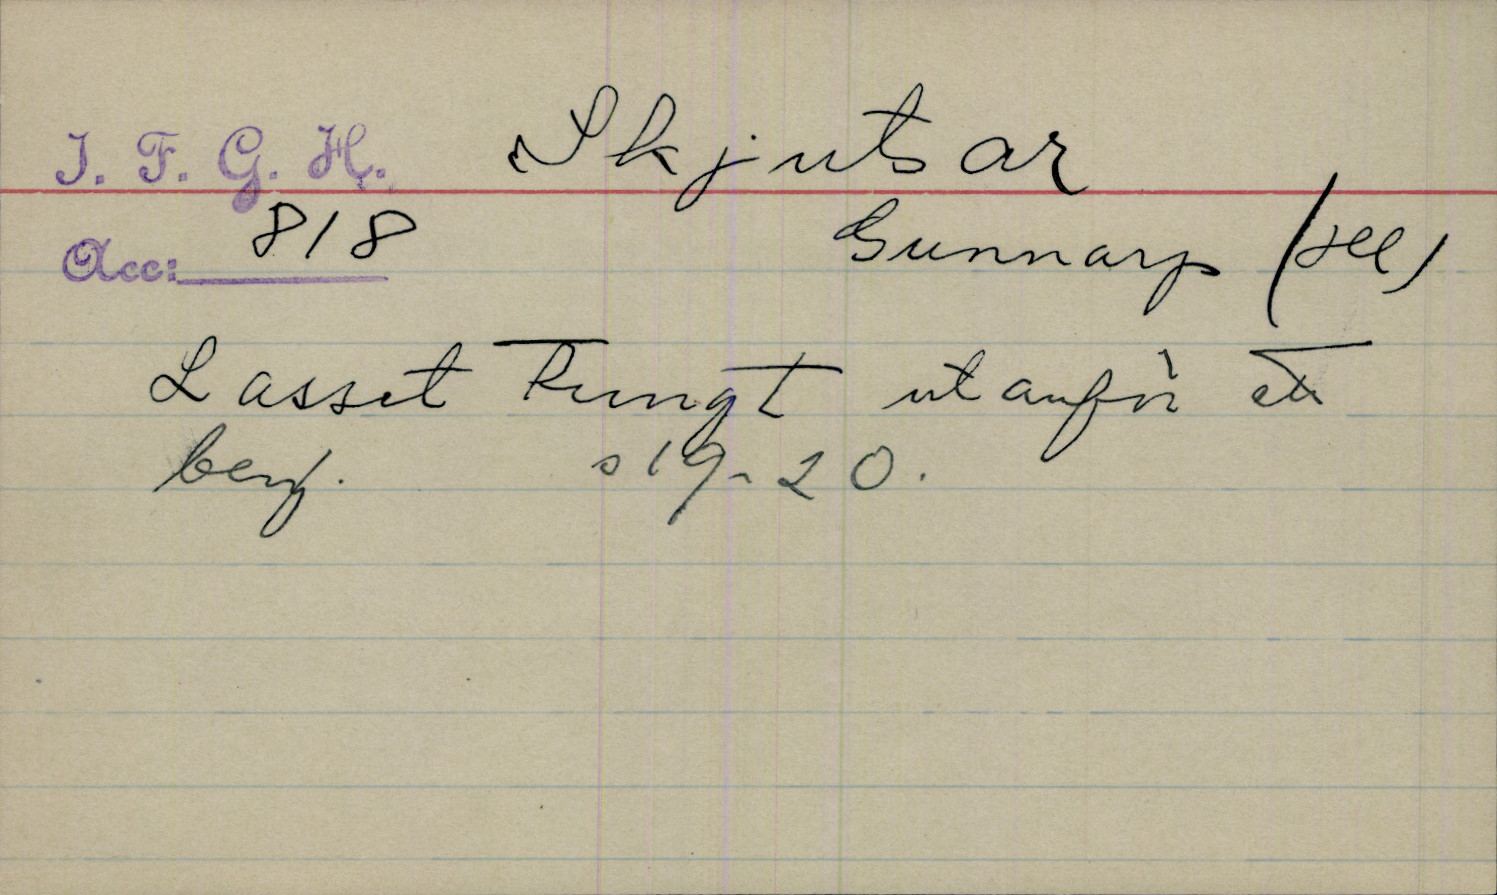 I. F. G. H. Skjutsar
Acc: 818 Gunnarp (Hll)
Lasset tungt utanför ett
berg. s 19-20.